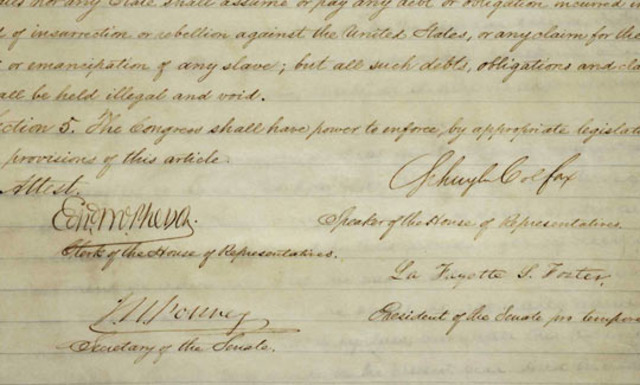 nor any State shall assume or pay any debt or obligation incurred
of insurrection or rebellion against the United States, or any claim for the
or emancipation of any slave; but all such debts, obligations and cla
all be held illegal and void.
ection 5. The Congress shall have power to enforce, by appropriate legislat
provisions of this article.
Attest.
Schuyler Colfax
Edwd McPherson.
Speaker of the House of Representatives.
Clerk of the House of Representatives.
La Fayette S. Foster,
J. W. Forney
President of the Senate pro tempore
Secretary of the Senate.